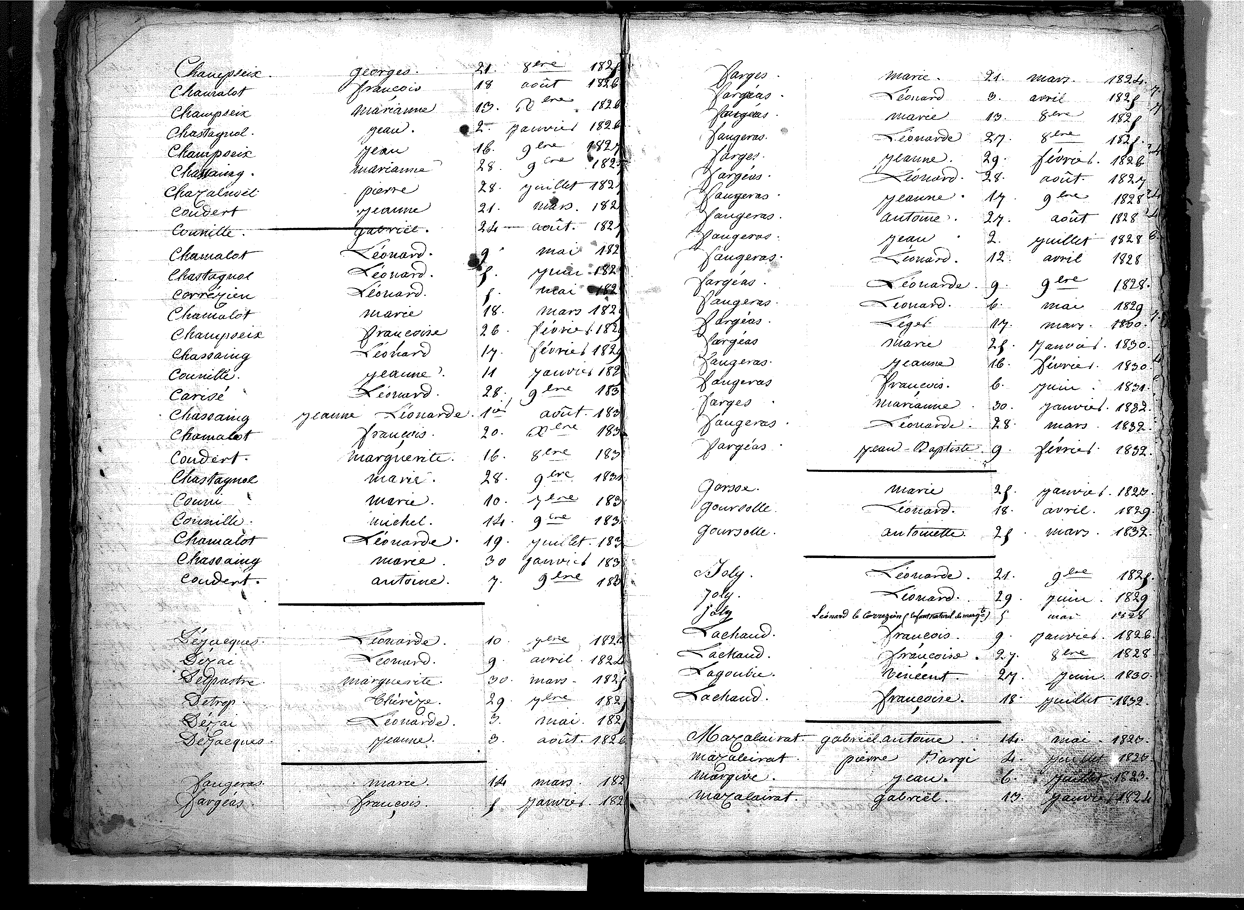 Champseix. georges. 21. 8ere 1825
Chamalot françois 18 août 1826
Champseix marianne 13. Xere 1826
Chastagnol. jean. 2 janvier 1826
Champseix jean 16. 9ere 1827
Chassaing. marianne 28. 9ere 1827
Chazalnoël pierre 28. juillet 182
Coudert jeanne 21. mars. 182
Counille. gabriel. 24 août. 182
Chamalot Léonard. 9 mai 182
Chastagnol Léonard. 5. juin 182
Corrézien Léonard. 5. mai 182
Chamalot marie 18. mars 182
Champseix françoise 26. février 182
Chassaing Léonard 17. février 1829
Counille. jeanne. 11 janvier 182
Carisé Léonard. 28. 9ere 183
Chassaing jeanne Léonarde. 1er août 183
Chamalot françois. 20. Xere 183
Coudert. marguerite. 16. 8ere 183
Chastagnol marie. 28. 9ere 183
marie. 10. 7ere 183
Counille. michel. 14. 9ere 183
Chamalot Léonarde. 19. juillet 183
Chassaing marie. 30 janvier 183
Coudert. antoine. 7. 9ere 183
Dézacques Léonarde. 10. 7ere 182
Dézai Léonard. 9. avril 1824
Delpastre marguerite. 30. mars. 1825
Détrop thérèze. 29 7ere 182
Dézai Léonarde. 3. mai. 182
Dézacques. jeanne. 3. août. 1826
faugeras. marie 14 mars 182
fargéas françois. 5 janvier 182
farges. marie. 21. mars. 1824.
fargéas. Léonard 3. avril 1825
fargéas marie 13. 8ere 1825
faugeras. Léonarde 27. 8ere 1825.
farges jeanne. 29. février. 1826
fargéas Léonard. 28. août 1827
faugeras jeanne. 17. 9ere 1828
faugeras antoine. 27. août 1828
faugeras jean 2. juillet 1828
faugeras. Léonard. 12. avril 1828
fargéas Léonarde. 9. 9ere 1828.
faugeras. Léonard. 6. mai 1829
fargéas. Léger 17. mars. 1830.
fargéas marie 25. janvier. 1830.
faugeras. jeanne 16. février. 1830.
faugeras françois. 6. juin 1831.
farges marianne 30. janvier. 1832.
faugeras. Léonarde. 28. mars. 1832.
fargéas. jean-Baptiste. 9. février. 1832.
Gorsse. marie 25. janvier. 1823.
goursolle. Léonard. 18. avril. 1829.
goursolle. antoinette 25. mars. 1832.
Joly. Léonarde. 21. 9ere 1825.
Joly. Léonard. 29. juin. 1829
joly Léonard le Correzien 5 mai 1828
Lachaud. françois. 9. janvier. 1826.
Lachaud. françoise. 27. 8ere 1828
Lagoubie vincent 27. juin. 1830.
Lachaud. françoise. 18. juillet. 1832.
Mazaleirat gabriel antoine. 14. mai. 1823.
mazaleirat. pierre 4. juillet 1823.
margive. jean. 6. juillet. 1823.
mazalairat gabriel. 13. janvier. 1824